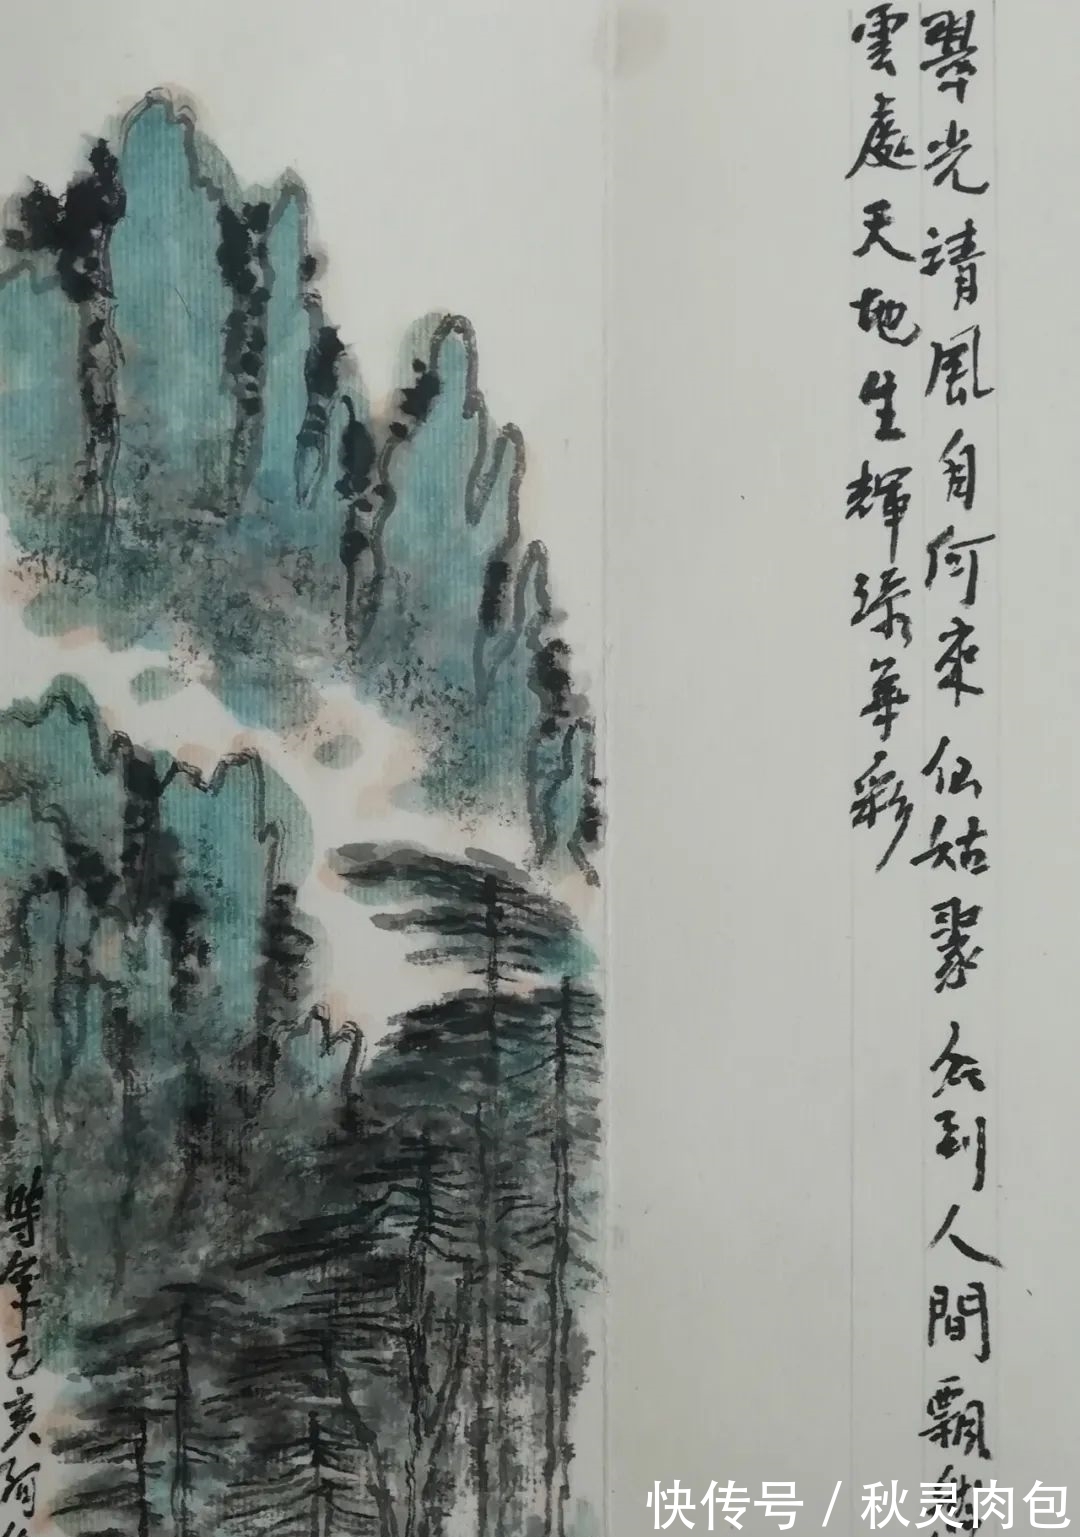 翠光清風自何來仙姑聚會到人間飄然
雲處天地生輝添華彩
時年己亥
快传号 / 秋灵肉包